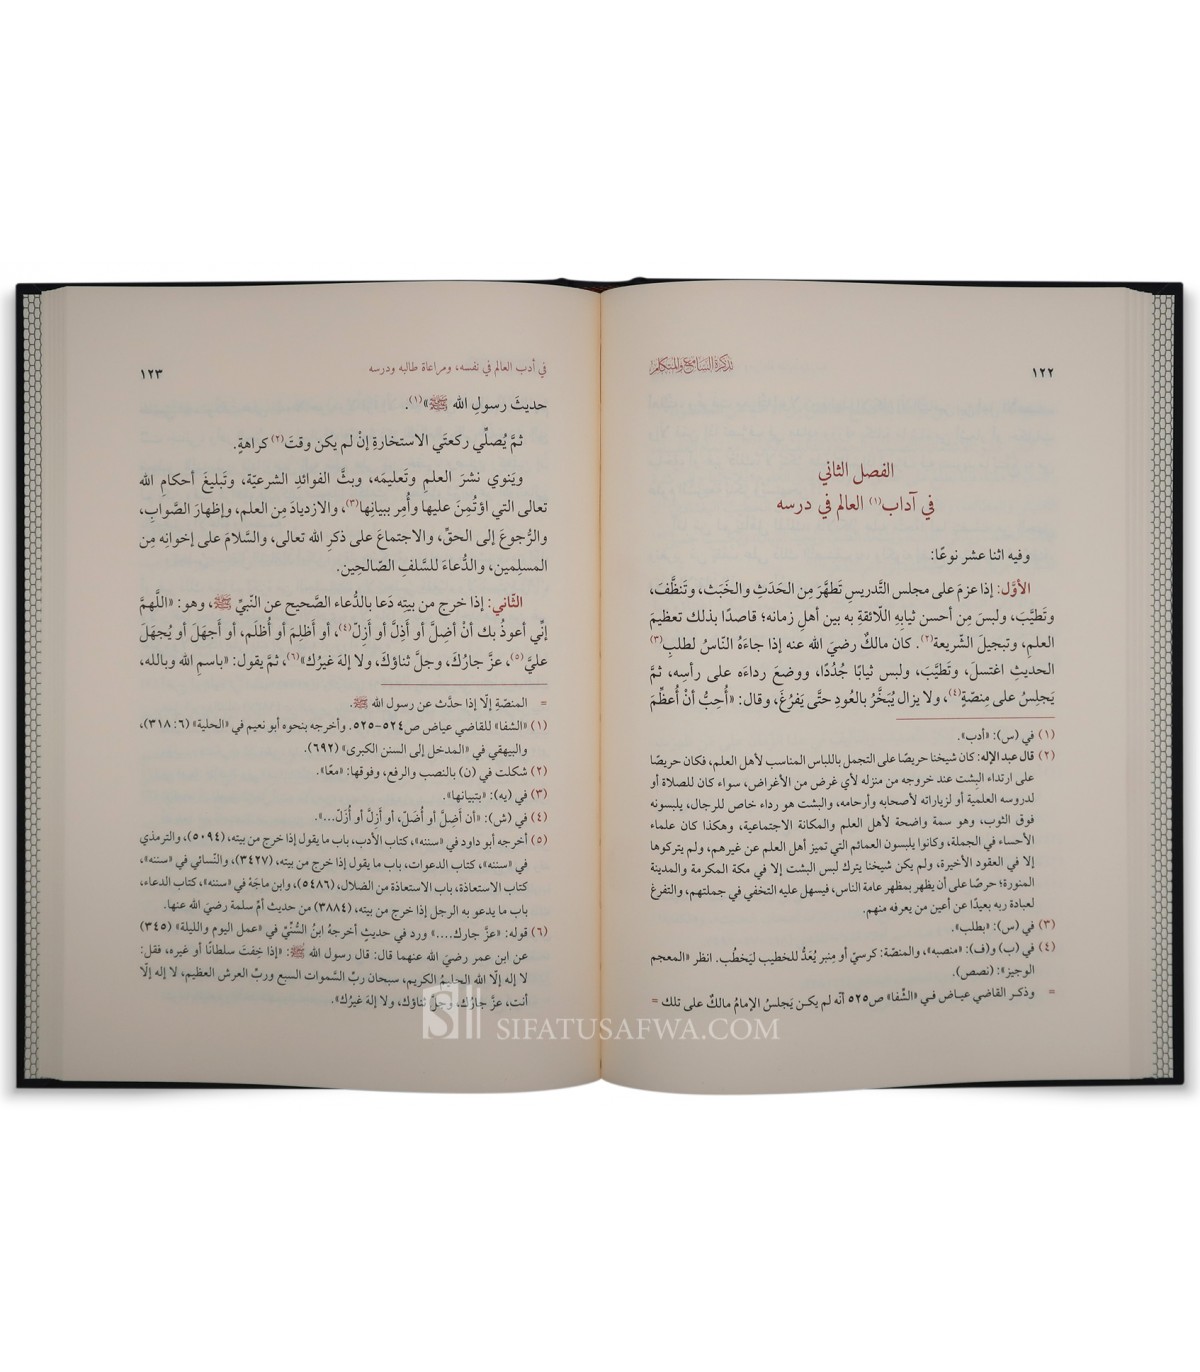 ١٢٢
تذكرة السامع والمتكلم
الفصل الثاني
في آداب(١) العالم في درسه
وفيه اثنا عشر نوعًا:
الأوَّل: إذا عزمَ على مجلس التَّدريسِ تَطهَّرَ مِن الحَدَثِ والخَبَث، وتَنظَّفَ،
وتَطيَّبَ، ولبسَ مِن أحسن ثيابِهِ اللّائقةِ به بين أهلِ زمانه؛ قاصدًا بذلك تعظيمَ
العلمِ، وتبجيلَ الشّريعة(٢). كان مالكٌ رضيَ الله عنه إذا جاءَهُ النّاسُ لطلبِ(٣)
الحديثِ اغتسلَ، وتَطيَّبَ، ولبس ثيابًا جُدُدًا، ووضعَ رداءَه على رأسِه، ثمَّ
يَجلِسُ على مِنصّةٍ(٤)، ولا يزال يُبَخَّرُ بالعُودِ حتَّى يَفرُغَ، وقال: «أُحِبُّ أنْ أُعظِّمَ
(١) في (س): «أدب».
(٢) قال عبد الإله: كان شيخنا حريصًا على التجمل باللباس المناسب لأهل العلم، فكان حريصًا
على ارتداء البِشت عند خروجه من منزله لأي غرض من الأغراض، سواء كان للصلاة أو
لدروسه العلمية أو لزياراته لأصحابه وأرحامه، والبشت هو رداء خاص للرجال، يلبسونه
فوق الثوب، وهو سمة واضحة لأهل العلم والمكانة الاجتماعية، وهكذا كان علماء
الأحساء في الجملة، وكانوا يلبسون العمائم التي تميز أهل العلم عن غيرهم، ولم يتركوها
إلا في العقود الأخيرة، ولم يكن شيخنا يترك لبس البشت إلا في مكة المكرمة والمدينة
المنورة؛ حرصًا على أن يظهر بمظهر عامة الناس، فيسهل عليه التخفي في جملتهم، والتفرغ
لعبادة ربه بعيدًا عن أعين من يعرفه منهم.
(٣) في (س): «بطلب».
(٤) في (ب) و(ف): «منصبه»، والمنصّة: كرسيّ أو مِنبر يُعَدُّ للخطيب ليَخطُب. انظر «المعجم
الوجيز»: (نصص).
= وذكر القاضي عياض في «الشّفا» ص٥٢٥ أنّه لم يكن يَجلسُ الإمامُ مالكٌ على تلك =
في أدب العالم في نفسه، ومراعاة طالبه ودرسه
١٢٣
حديثَ رسولِ الله ﷺ»(١).
ثمَّ يُصلِّي ركعتَي الاستخارةِ إنْ لم يكن وقتَ(٢) كراهةٍ.
ويَنوي نشرَ العلمِ وتَعليمَه، وبثَّ الفوائدِ الشرعيّة، وتَبليغَ أحكامِ الله
تعالى التي اؤتُمِنَ عليها وأُمِر ببيانِها(٣)، والازديادَ مِن العلم، وإظهارَ الصَّوابِ،
والرُّجوعَ إلى الحقِّ، والاجتماعَ على ذكرِ الله تعالى، والسَّلامَ على إخوانِه مِن
المسلِمين، والدُّعاءَ للسَّلفِ الصّالحِين.
الثّاني: إذا خرج من بيتِه دَعا بالدُّعاء الصَّحيح عن النّبيِّ ﷺ، وهو: «اللَّهمَّ
إنِّي أعوذُ بك أنْ أضِلَّ أو أَذِلَّ أو أَزِلّ(٤)، أو أَظلِمَ أو أُظلَم، أو أَجهَلَ أو يُجهَلَ
عليَّ(٥)، عزَّ جارُكَ، وجلَّ ثناؤكَ، ولا إلهَ غيرُك»(٦)، ثمَّ يقول: «باسمِ الله وبالله،
= المنصّةِ إلّا إذا حدَّث عن رسول الله ﷺ.
(١) «الشفا» للقاضي عياض ص٥٢٤-٥٢٥. وأخرجه بنحوه أبو نعيم في «الحلية» (٦: ٣١٨)،
والبيهقي في «المدخل إلى السنن الكبرى» (٦٩٢).
(٢) شكلت في (ن) بالنصب والرفع، وفوقها: «معًا».
(٣) في (يه): «بتبيانها».
(٤) في (ش): «أن أضِلَّ أو أُضَلّ، أو أَزِلَّ أو أُزَلّ...».
(٥) أخرجه أبو داود في «سننه»، كتاب الأدب، باب ما يقول إذا خرج من بيته، (٥٠٩٤)، والترمذي
في «سننه»، كتاب الدعوات، باب ما يقول إذا خرج من بيته، (٣٤٢٧)، والنّسائي في «سننه»،
كتاب الاستعاذة، باب الاستعاذة من الضلال، (٥٤٨٦)، وابن ماجَهْ في «سننه»، كتاب الدعاء،
باب ما يدعو به الرجل إذا خرج من بيته، (٣٨٨٤) من حديث أمّ سلمة رضيَ الله عنها.
(٦) قوله: «عزَّ جارك....» ورد في حديثٍ أخرجهُ ابنُ السُّنِّيّ في «عمل اليوم والليلة» (٣٤٥)
عن ابن عمر رضيَ الله عنهما قال: قال رسول الله ﷺ: «إذا خِفتَ سلطانًا أو غيره، فقل:
لا إله إلّا الله الحليمُ الكريم، سبحان ربِّ السَّموات السبع وربِّ العرش العظيم، لا إله إلّا
أنت، عزَّ جارُك، وجلَّ ثناؤك، ولا إلهَ غيرُك».
SIFATUSAFWA.COM